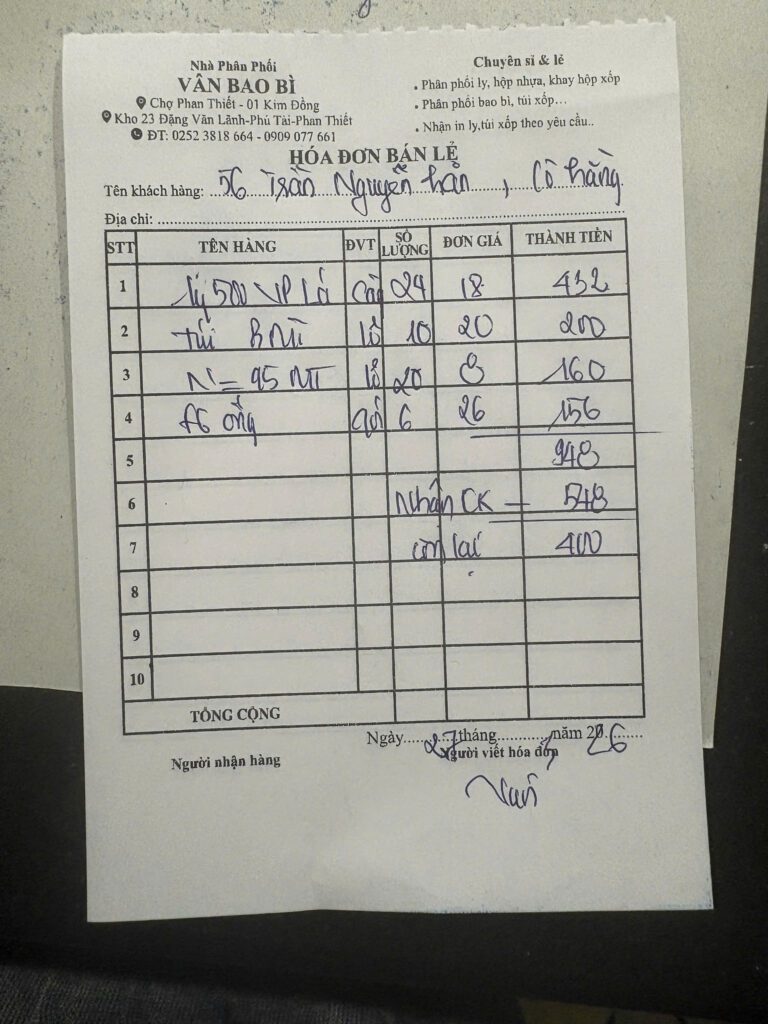 Nhà Phân Phối
VÂN BAO BÌ
Chợ Phan Thiết - 01 Kim Đồng
Kho 23 Đặng Văn Lãnh-Phú Tài-Phan Thiết
ĐT: 0252 3818 664 - 0909 077 661
Chuyên sỉ & lẻ
. Phân phối ly, hộp nhựa, khay hộp xốp
. Phân phối bao bì, túi xốp...
. Nhận in ly,túi xốp theo yêu cầu..
HÓA ĐƠN BÁN LẺ
Tên khách hàng: 56 Trần Nguyễn hãn, Cô hằng
Địa chỉ:
STT TÊN HÀNG ĐVT SỐ LƯỢNG ĐƠN GIÁ THÀNH TIỀN
1 ly 500 VP Lá 24 18 432
2 túi B Mì lô 10 20 200
3 N = 95 MT lô 20 8 160
4 ống gói 6 26 156
5 948
6 Nhận CK - 548
7 còn lại 400
8
9
10
TỔNG CỘNG
Ngày 27 tháng năm 2026
Người nhận hàng Người viết hóa đơn